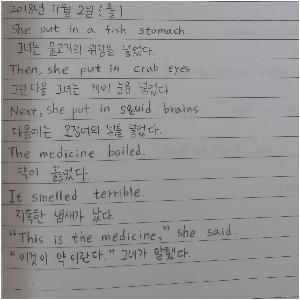 2018년 11월 2일 (월)
She put in a fish stomach.
그녀는 물고기의 위장을 넣었다.
Then, she put in crab eyes.
그런 다음 그녀는 게의 눈을 넣었다.
Next, she put in squid brains.
다음에는 오징어의 뇌를 넣었다.
The medicine boiled.
약이 끓었다.
It smelled terrible.
지독한 냄새가 났다.
"This is the medicine," she said.
"이것이 약이란다." 그녀가 말했다.